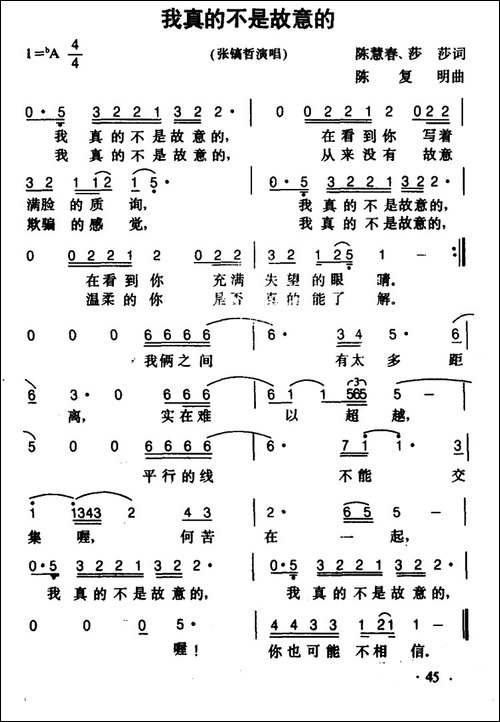 我真的不是故意的
1=ᵇA 4/4 (张镐哲演唱) 陈慧春、莎 莎词
陈 复 明曲
0·5 3221 322· 0 02212 022
我 真的不是故意的, 在看到你 写着
我 真的不是故意的, 从来没有 故意
32 112 15· 0·5 3221 322·
满脸的质 询, 我 真的不是故意的,
欺骗的感 觉, 我 真的不是故意的,
0 02212 022 32 125 5 — :‖
在看到你 充满 失望的眼 睛。
温柔的你 是否 真的能了 解。
0 0 0 6666 6· 34 5· 6
我俩之间 有太多 距
6 3·0 0 666 61 1 565 5 —
离, 实在难 以 超 越,
5 0 0 6666 6· 71 1· 3
平行的线 不能 交
1 1343 2 43 2· 65 5 —
集喔, 何苦 在 一 起,
0·5 3221 322· 0·5 3221 322·
我 真的不是故意的, 我 真的不是故意的,
0 0 0 5· 4433 121 1 ‖
喔! 你也可能 不相 信。
· 45 ·